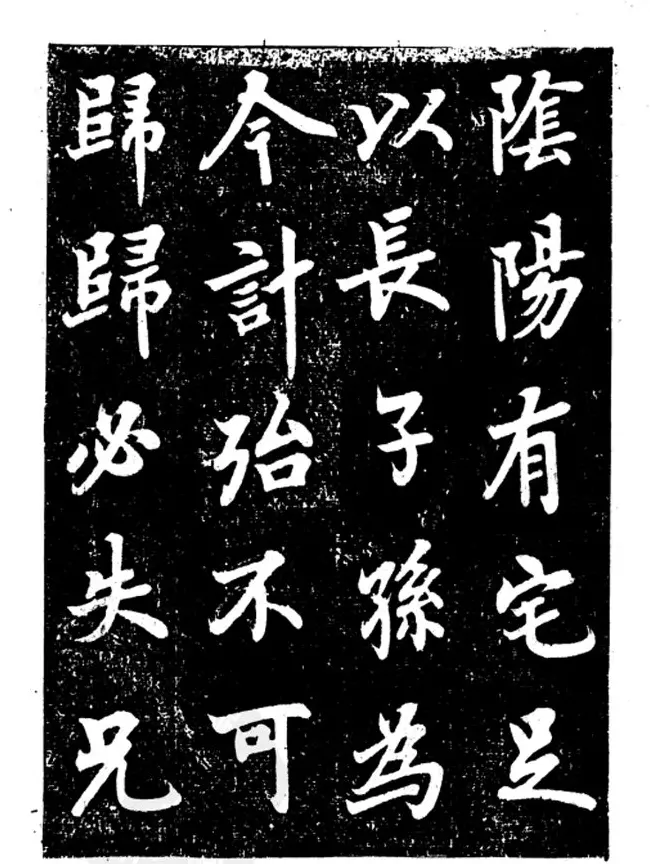 陰陽有宅足
以長子孫為
今計殆不可
歸歸必失兄